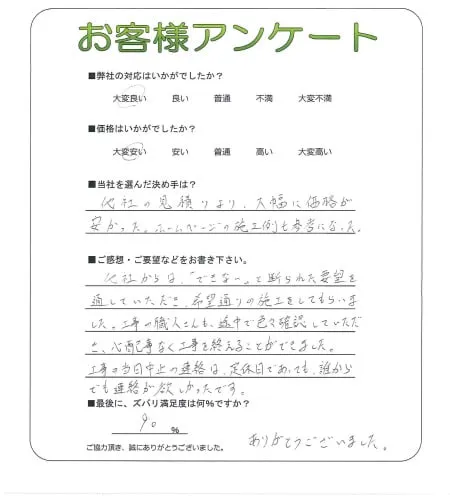 お客様アンケート
■弊社の対応はいかがでしたか?
大変良い 良い 普通 不満 大変不満
■価格はいかがでしたか?
大変安い 安い 普通 高い 大変高い
■当社を選んだ決め手は?
他社の見積りより、大幅に価格が
安かった。ホームページの施工例も参考になった。
■ご感想・ご要望などをお書き下さい。
他社からは、"できない"と断られた要望を
通していただき、希望通りの施工をしてもらいま
した。工事の職人さんも、途中で色々確認していただ
き、心配事なく工事を終えることができました。
工事の当日中止の連絡は、定休日であっても、誰から
でも連絡が欲しかったです。
■最後に、ズバリ満足度は何%ですか?
90 %
ありがとうございました。
ご協力頂き、誠にありがとうございました。